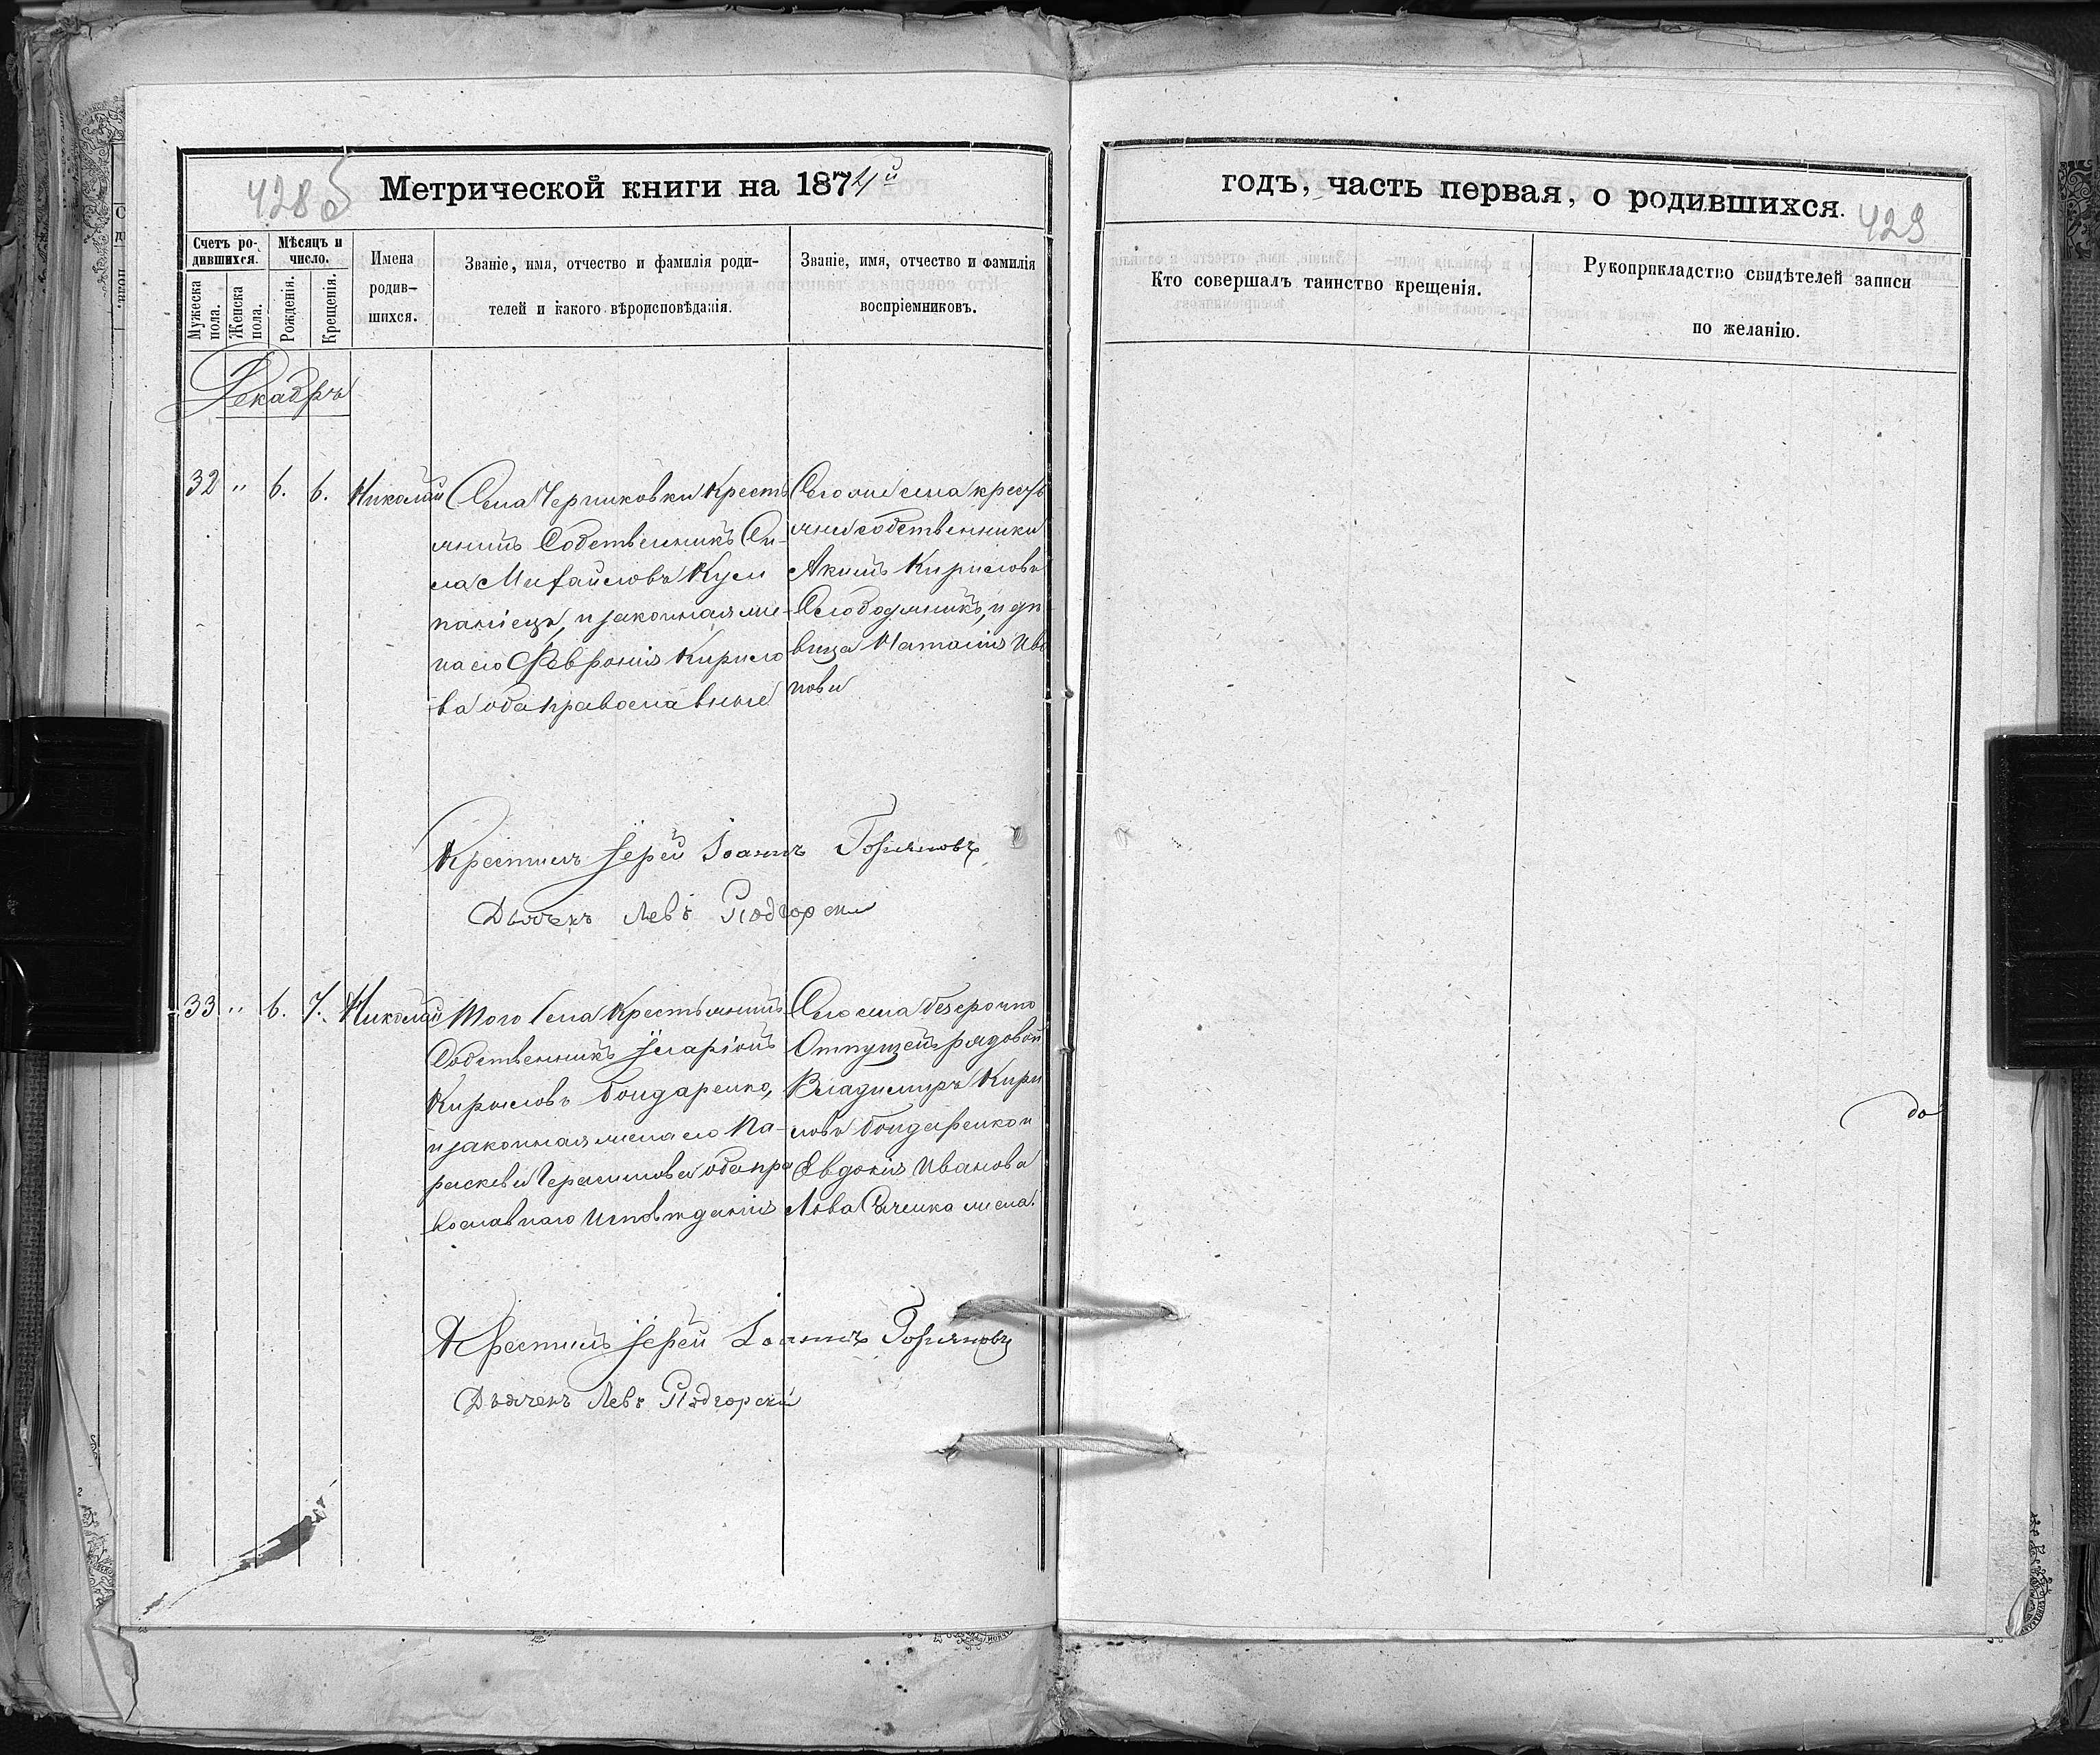 428 б
Метрической книги на 1874й
годъ, часть первая, о родившихся.
429
Счетъ ро-
дившихся.
Мужеска пола.
Женска пола.
Мѣсяцъ и
число.
Рожденія.
Крещенія.
Имена
родив-
шихся.
Званіе, имя, отчество и фамилія роди-
телей и какого вѣроисповѣданія.
Званіе, имя, отчество и фамилія
воспріемниковъ.
Кто совершалъ таинство крещенія.
Рукоприкладство свидѣтелей записи
по желанію.
Декабрь
32 " 6. 6. Николай
Села Крестъ
янинъ Собственникъ Си-
ла Михайловъ
и законная же-
на его Февронія Кирило
ва оба православные
села кресть
яне собственники
Акимъ Кириловъ
и дѣ
вица Наталія Ива
нова
Крестилъ Іерей Іоаннъ
Дьячекъ Левъ Подгорскій
33 " 6. 7. Николай
Того села Крестьянинъ
Собственникъ Іларіонъ
Кириловъ Бондаренко,
и законная жена его Па-
раскева Герасимова оба пра
вославнаго исповѣданія
села безсрочно
Отпущен. рядовой
Владимиръ Кири
ловъ Бондаренко и
Евдокія Иванова
Льва жена.
Крестилъ Іерей Іоаннъ
Дьячекъ Левъ Подгорскій